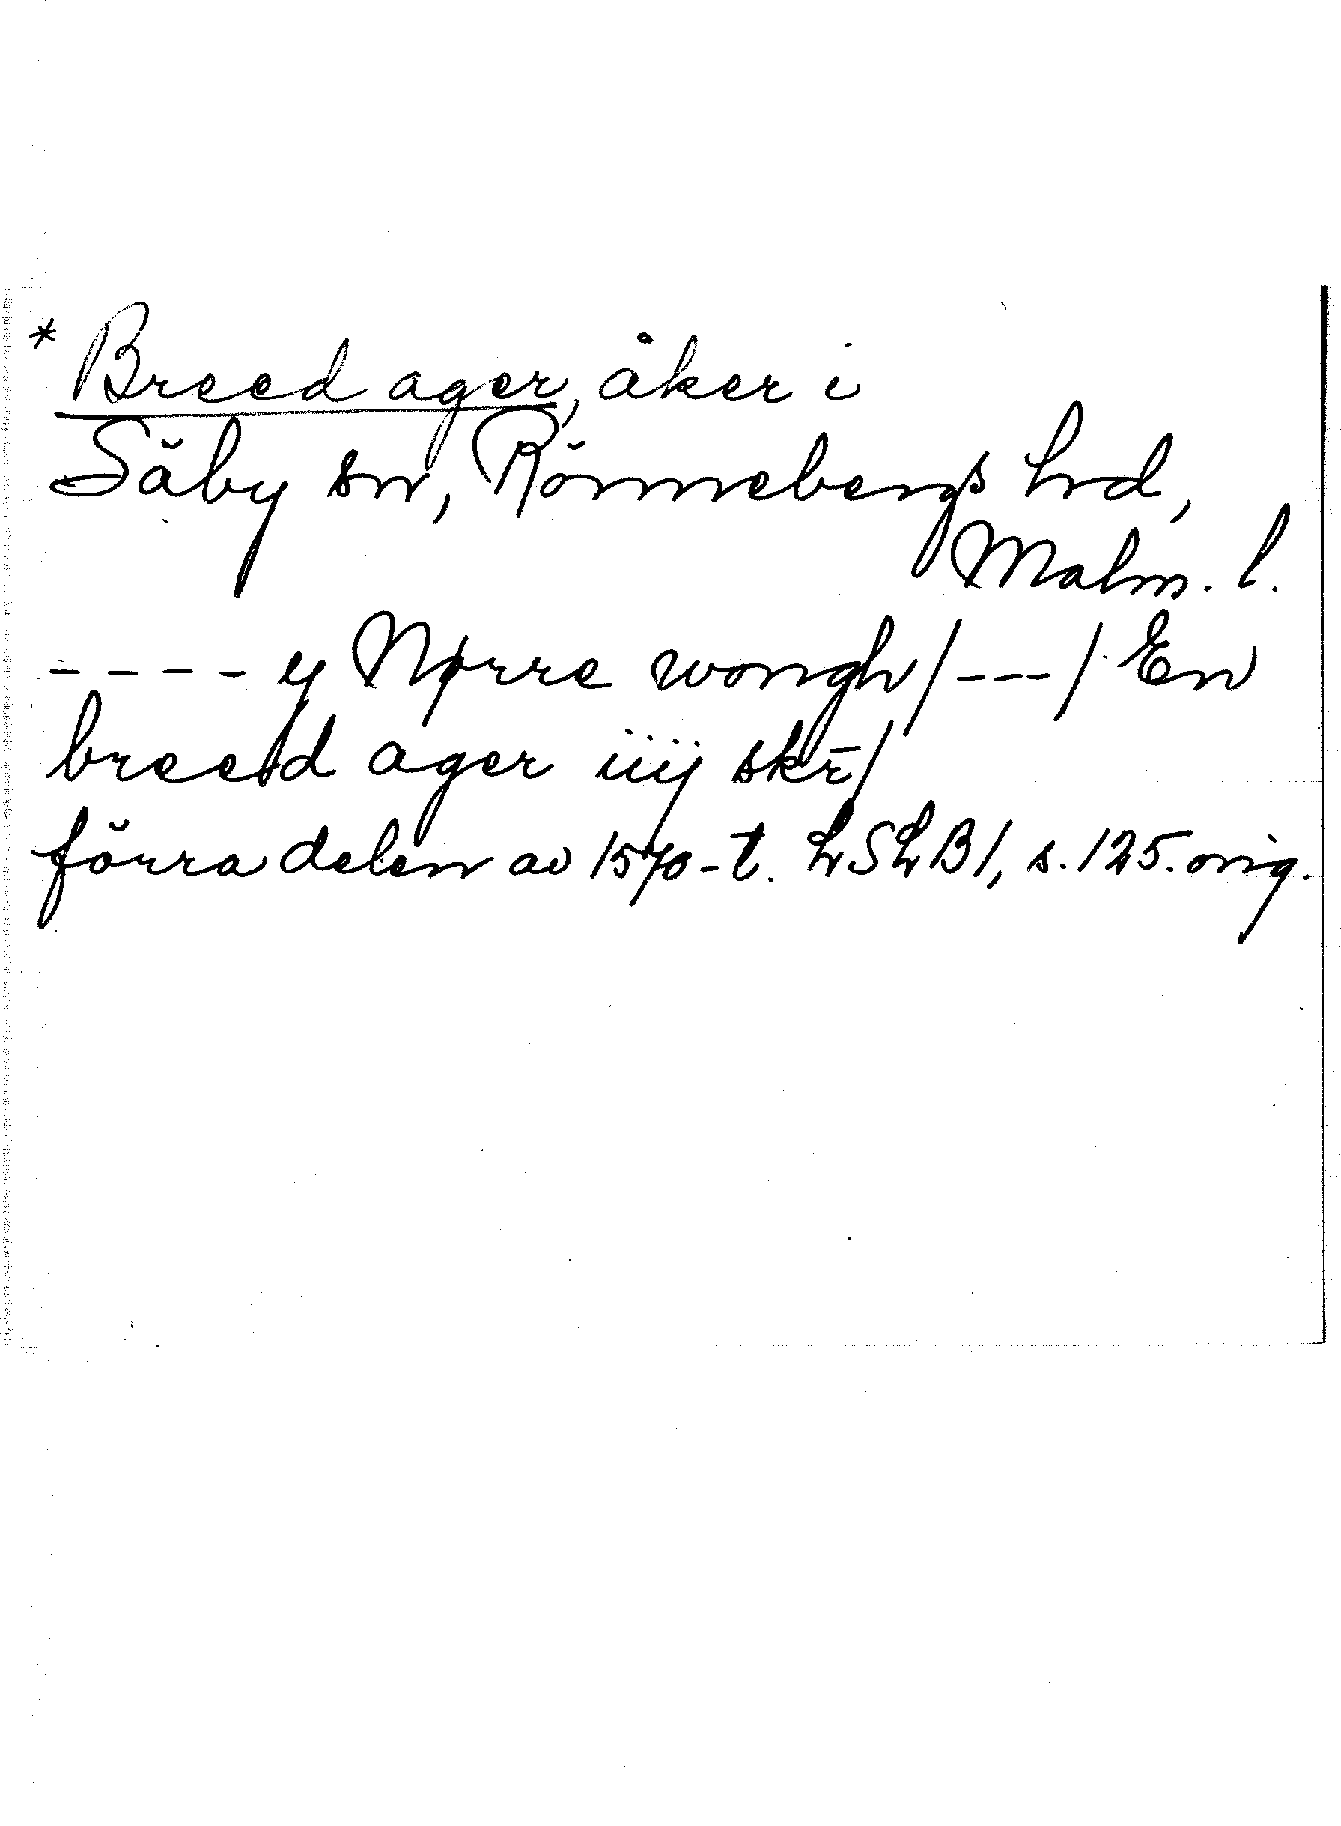 * Breed ager, åker i
Säby sn, Rönnebergs hd,
Malm. l.
---- y Nørre wongh/---/ En
breed ager iiij skr̄/
förra delen av 1570-t. LSLB1, s. 125. orig.